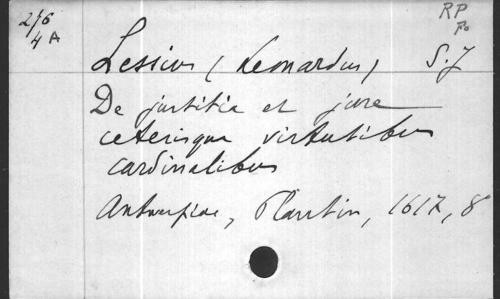 2/6
4 A
RP
Po
Lessius (Leonardus) S.J
De justitia et jure
ceterisque virtutibus
cardinalibus
Antverpiae, Plantin, 1617, 8°